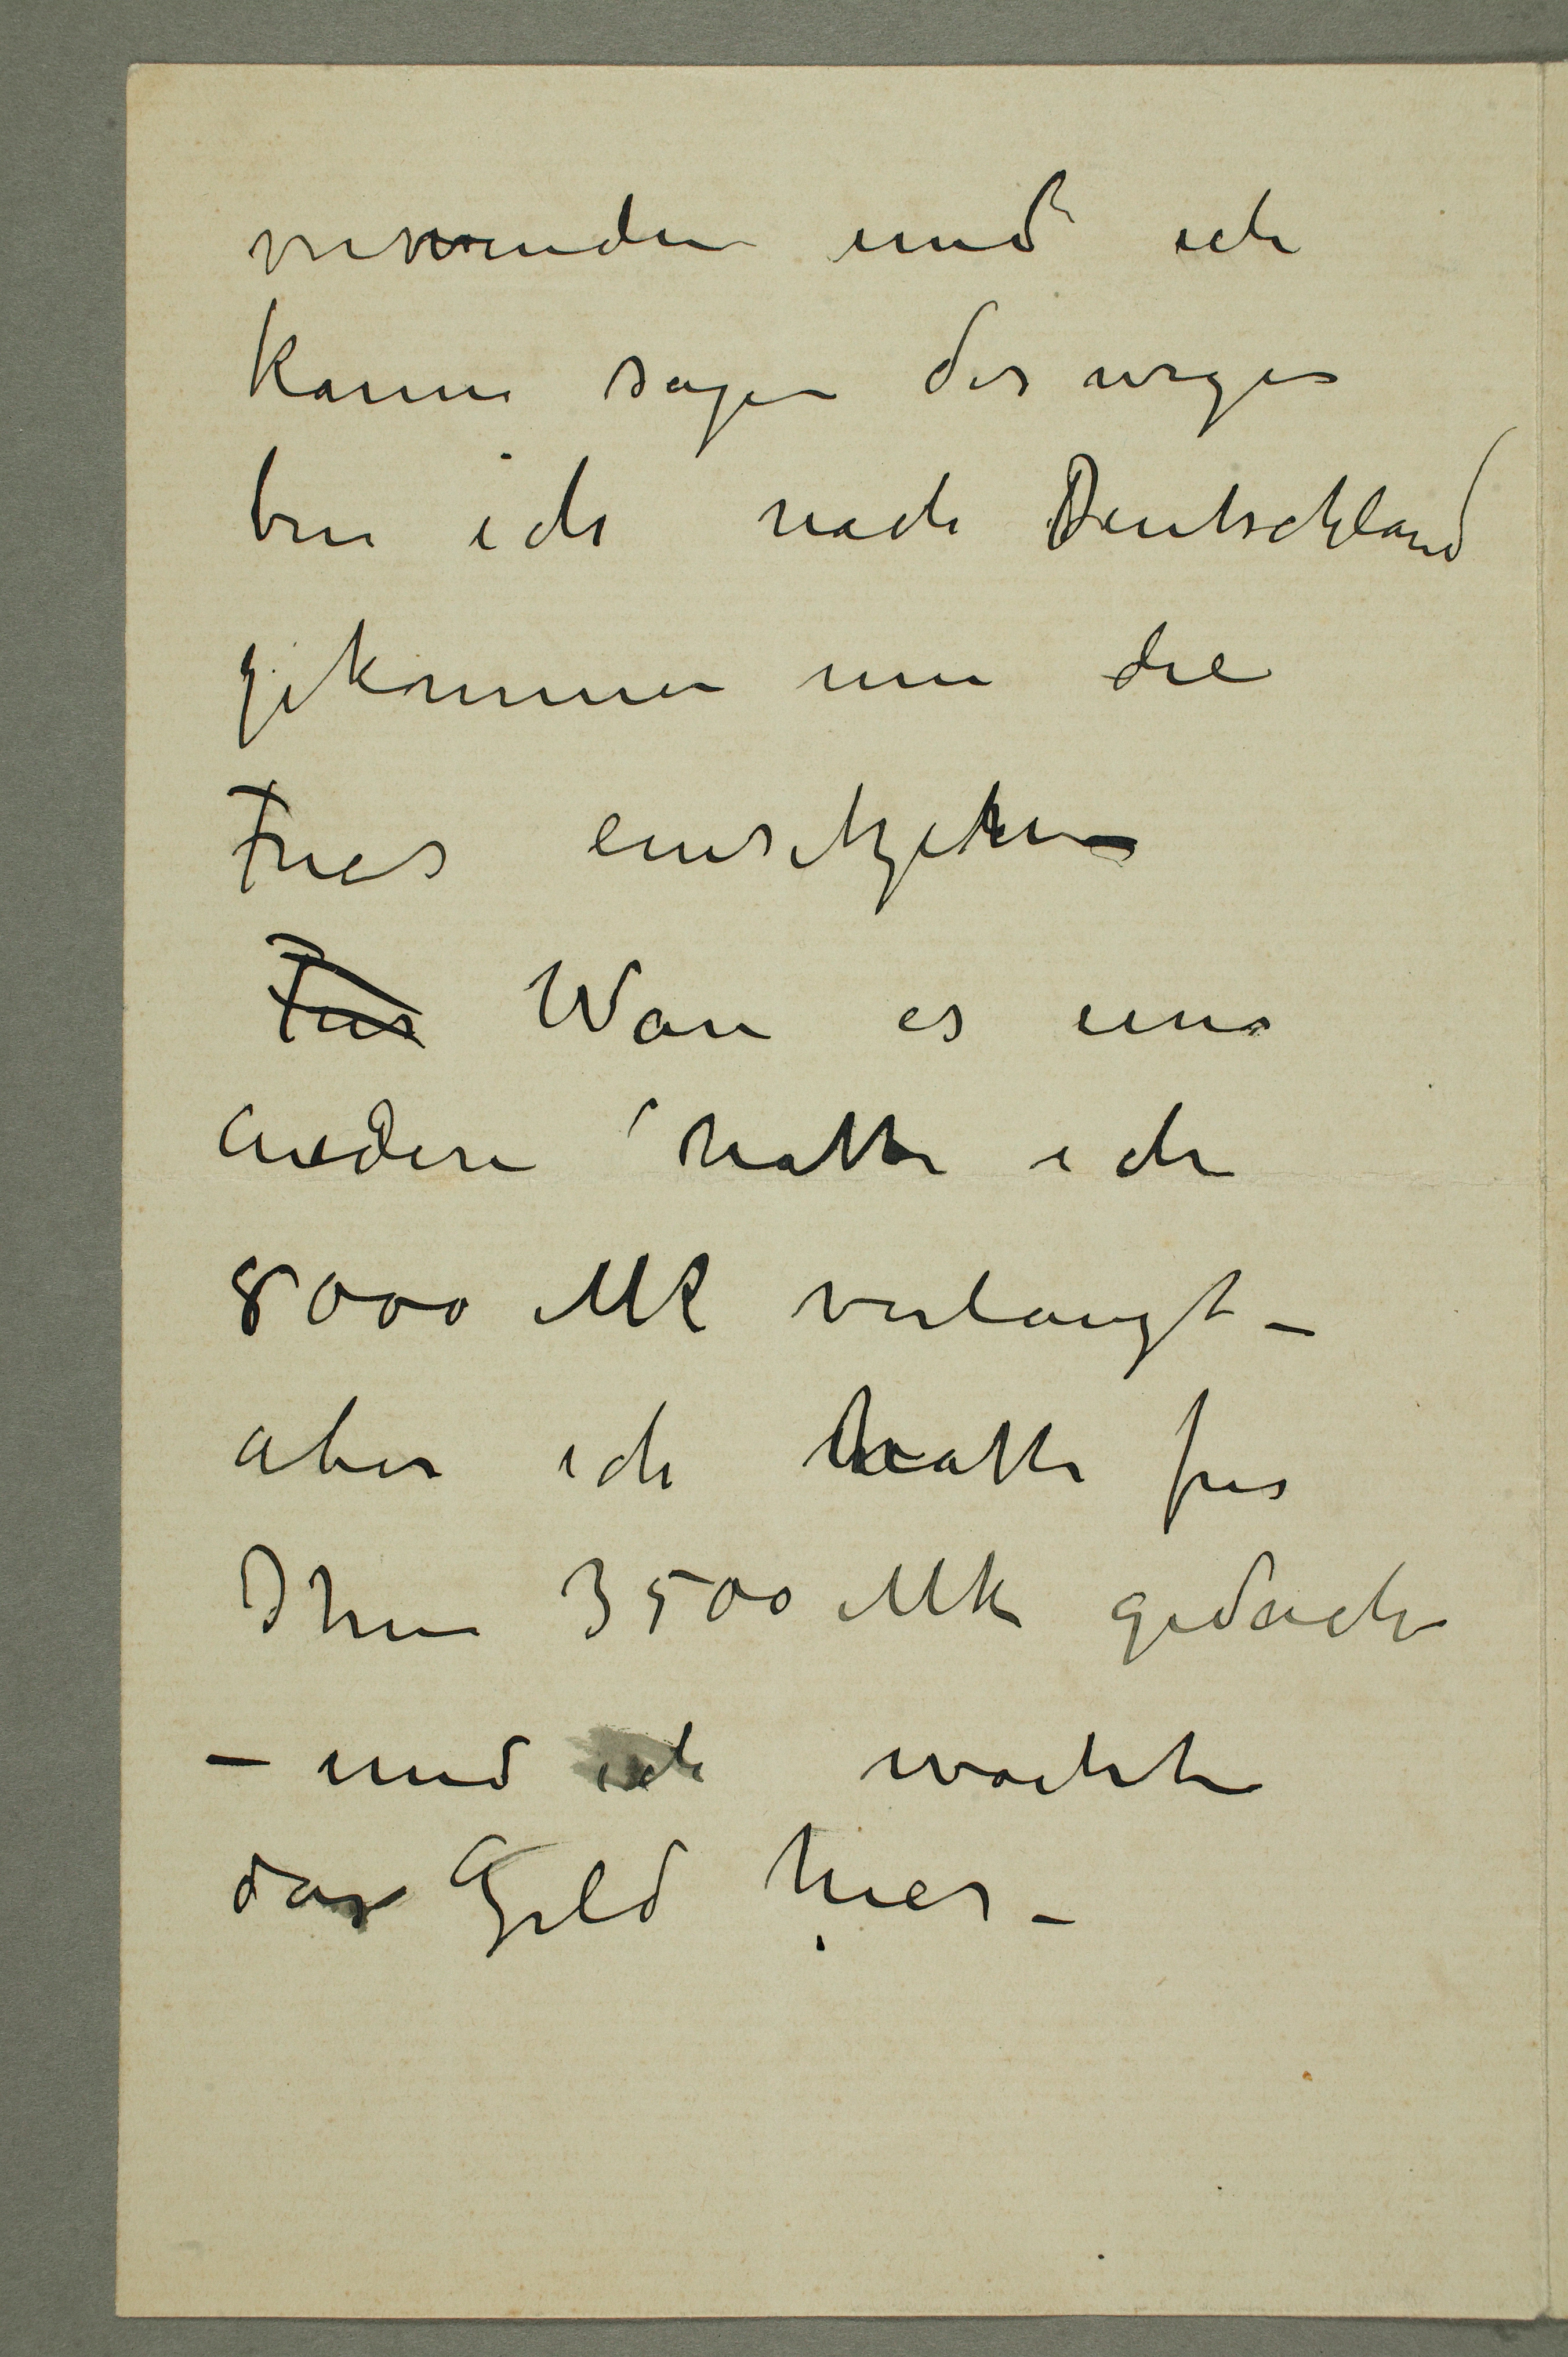 verwenden und ich
kann sagen deswegen
bin ich nach Deutschland
gekommen um die
Fries einsetzen
Fries War es eine
andere hatte ich
8000 Mk verlangt –
aber ich hatte fur
Ihnen 3500 Mk gedach
– und ich
das Geld hier –